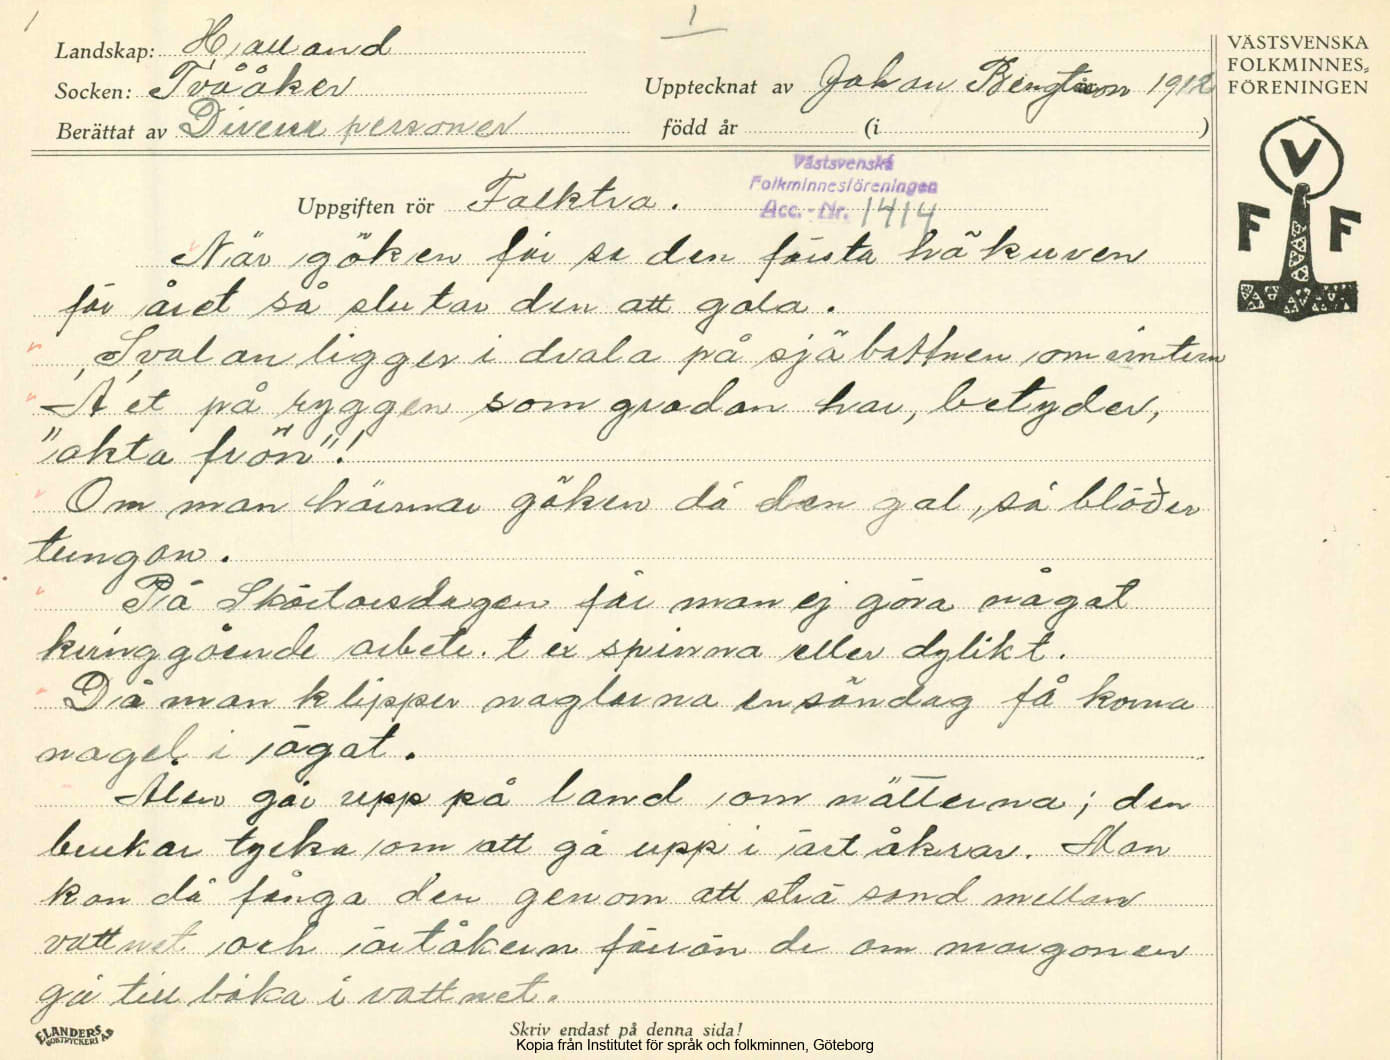 1
Landskap: Halland
Socken: Tvååker
Upptecknat av Johan Bengtsson 1912
Berättat av Diverse personer
född år (i )
VÄSTSVENSKA
FOLKMINNES-
FÖRENINGEN
V
F F
Västsvenska
Folkminnesföreningen
Acc. - Nr. 1414
Uppgiften rör Folktro.
När göken får se den första håkuven
för året så slutar den att gala.
Svalan ligger i dvala på sjöbottnen om vintern
A'et på ryggen som grodan har, betyder,
"akta från"!
Om man härmar göken då den gal, så blöder
tungan.
På Skärtorsdagen får man ej göra något
kringgående arbete. t ex spinna eller dylikt.
Då man klipper naglarna en söndag få korna
nagel i ögat.
Ålen går upp på land om nätterna; den
brukar tycka om att gå upp i ärtåkrar. Man
kan då fånga den genom att strö sand mellan
vattnet och ärtåkern förrän de om morgonen
gå till baka i vattnet.
ELANDERS
BOKTRYCKERI AB
Skriv endast på denna sida!
Kopia från Institutet för språk och folkminnen, Göteborg